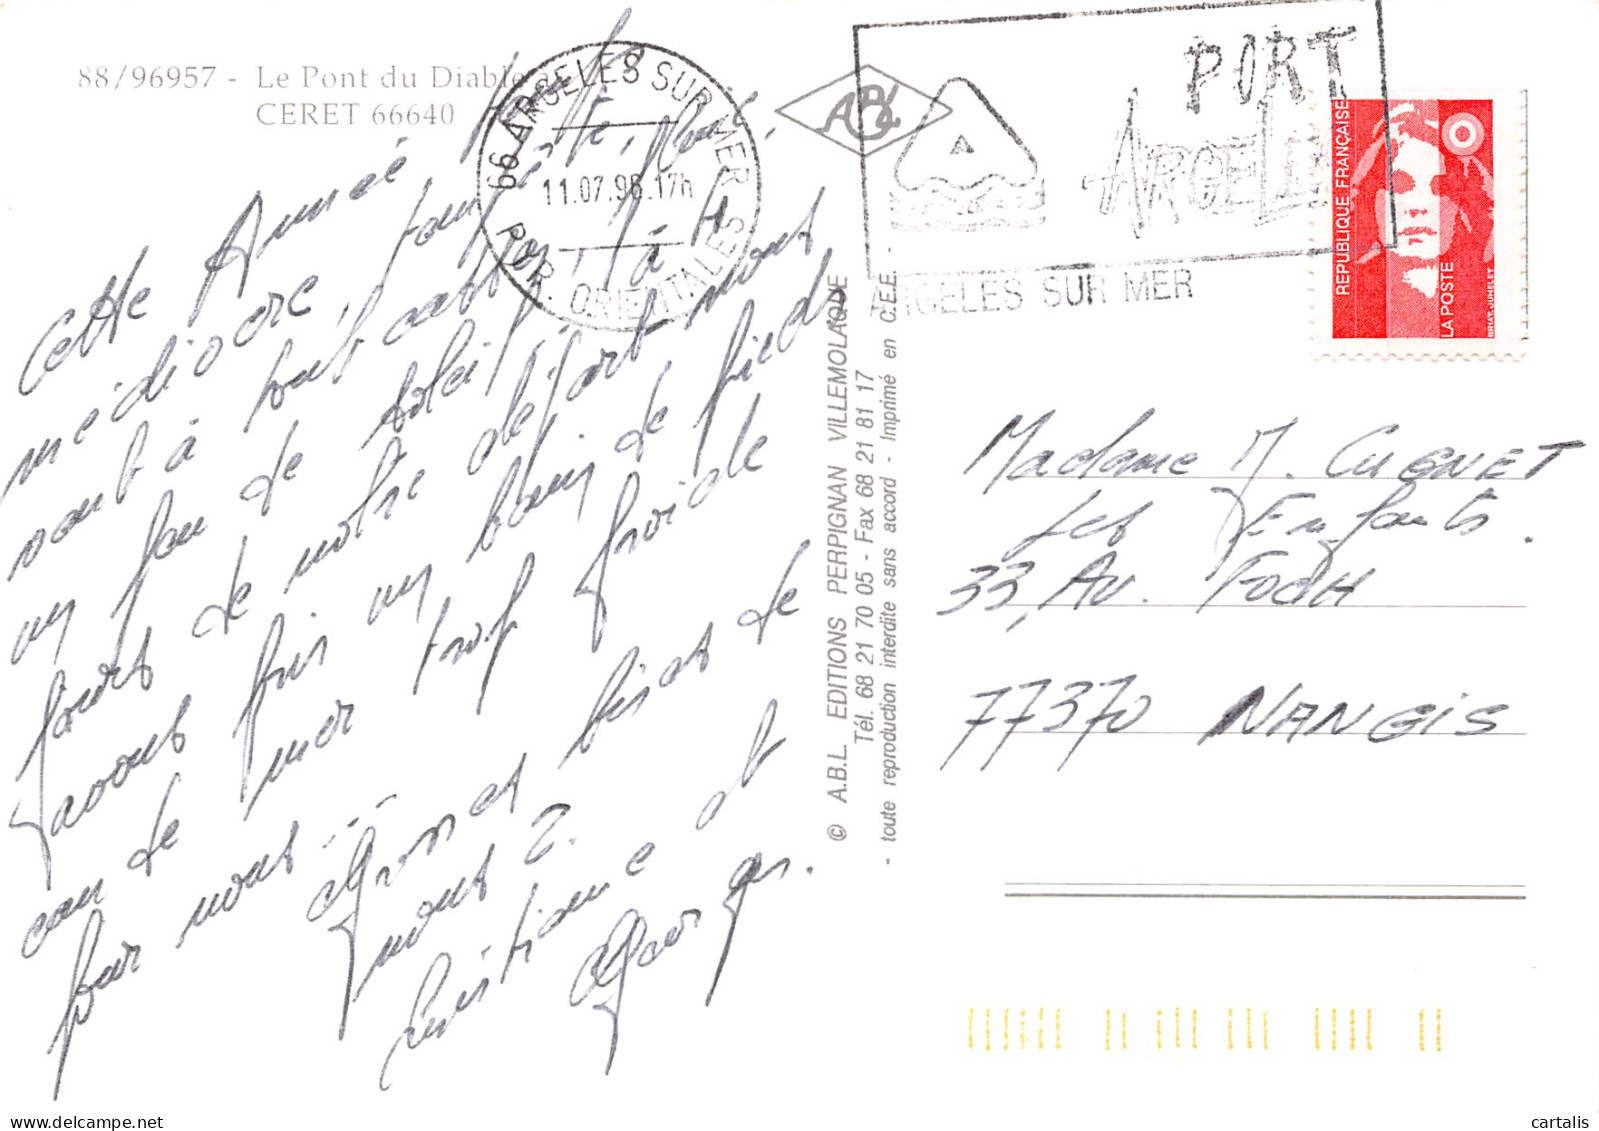 88/96957 - Le Pont du Diable à
CERET 66640
Cette Année
médiocre, tout
sont à tout
un peu de soleil, à 4
jours de notre départ nous
avons pris un bain de pieds
car de mer trop froide
pour nous...
Grosses bises de
nous 2.
Christiane et
Georges.
66 ARGELES SUR MER
11.07.96.17h
PYR. ORIENTALES
ABL
PORT
ARGELES
ARGELES SUR MER
REPUBLIQUE FRANÇAISE
LA POSTE
BRIAT-JUMELET
© A.B.L. EDITIONS PERPIGNAN VILLEMOLAQUE
Tél. 68 21 70 05 - Fax 68 21 81 17
- toute reproduction interdite sans accord - Imprimé en C.E.E. -
Madame M. CUGNET
Les Enfants.
33, Av. FOCH
77370 NANGIS
delcampe.net
cartalis